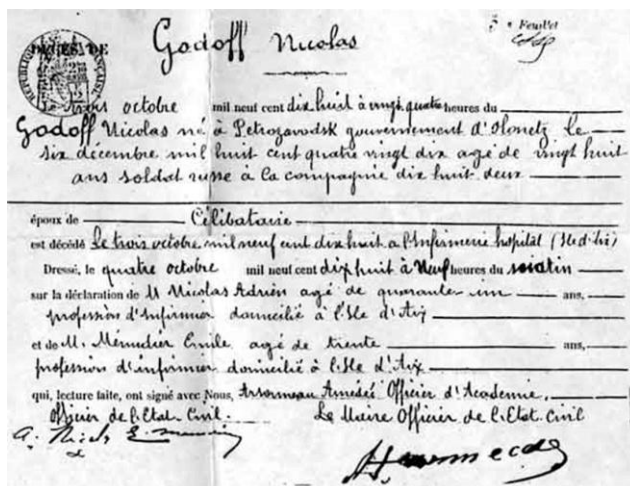 DÉCÈS DE Godoff Nicolas
Feuillet
RÉPUBLIQUE FRANÇAISE
Le trois octobre mil neuf cent dix huit à vingt quatre heures du
Godoff Nicolas né à Petrozavodsk gouvernement d'Olonetz le
six décembre mil huit cent quatre vingt dix agé de vingt huit
ans soldat russe à la compagnie dix huit deux
époux de Célibataire
est décédé le trois octobre mil neuf cent dix huit à l'Infirmerie hopital
Dressé, le quatre octobre mil neuf cent dix huit à Neuf heures du matin
sur la déclaration de M Nicolas Adrien agé de quarante un ans,
profession d'infirmier domicilié à l'Isle d'Aix
et de M. Ménudier Emile agé de trente ans,
profession d'infirmier domicilié à l'Isle d'Aix
qui, lecture faite, ont signé avec Nous, Amédée Officier d'Academie,
Officier de l'Etat Civil. Le Maire Officier de l'Etat Civil